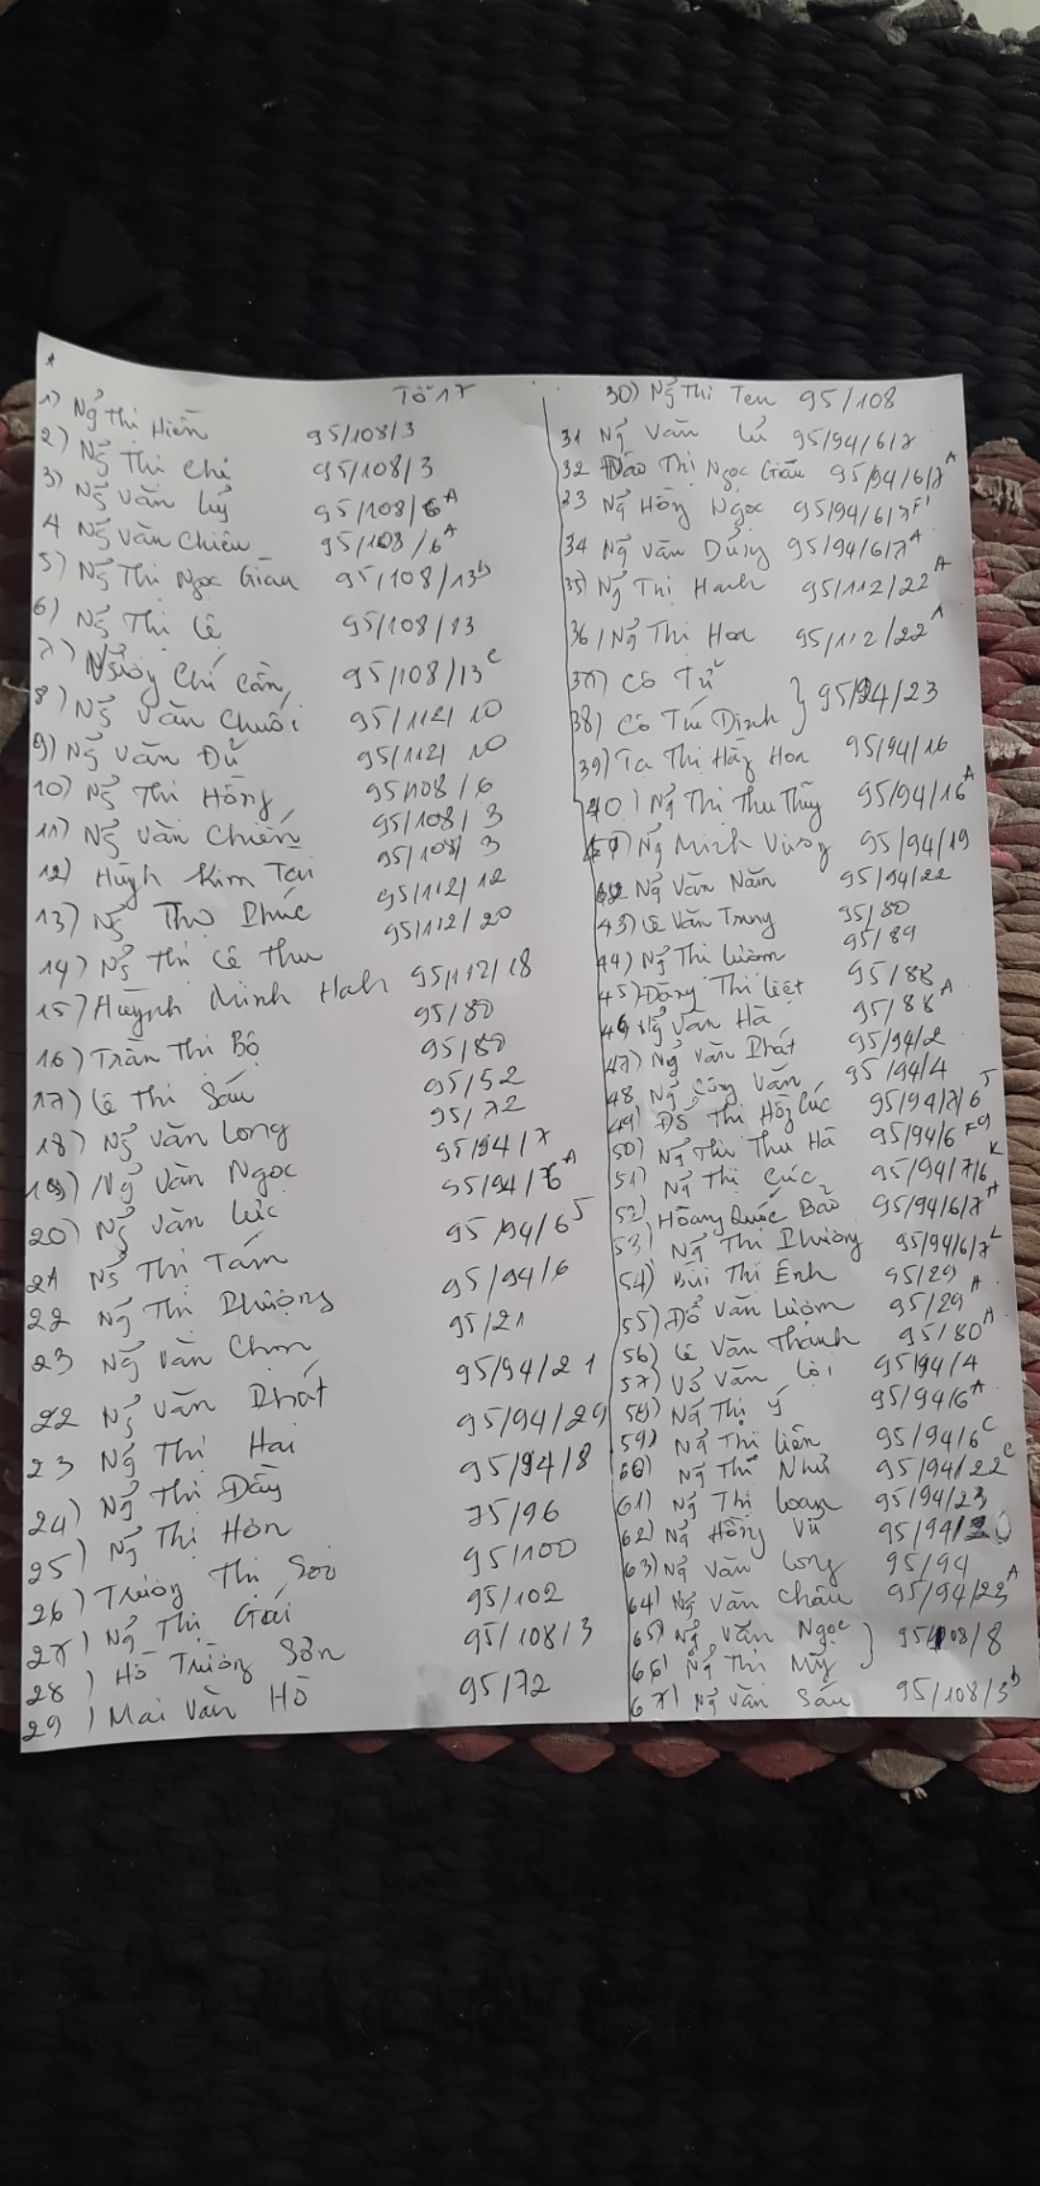 Tổ 17
1) Ng̉ Thị Hiền 95/108/3
2) Ng̉ Thị Chi 95/108/3
3) Ng̉ Văn Luỹ 95/108/6A
4 Ng̉ Văn Chiêu 95/108/6A
5) Ng̉ Thị Ngọc Giàu 95/108/13b
6) Ng̉ Thị Lệ 95/108/13
7) Chí Cần 95/108/13C
8) Ng̉ Văn Chuối 95/112/10
9) Ng̉ Văn Dữ 95/112/10
10) Ng̉ Thị Hồng 95/108/6
11) Ng̉ Văn Chiến 95/108/3
12) Huỳnh Kim Tài 95/108/3
13) Ng̉ Thọ Phúc 95/112/12
14) Ng̉ Thị Lê Thu 95/112/20
15) Huỳnh Minh Hah 95/112/18
16) Trần Thị Bộ 95/80
17) Lê Thị Sáu 95/80
18) Ng̉ Văn Long 95/52
19) Ng̉ Văn Ngọc 95/72
20) Ng̉ Văn Lực 95/94/7
21 Ng̉ Thị Tám 95/94/6A
22 Ng̉ Thị Phượng 95/94/65
23 Ng̉ Văn Chơn 95/94/6
22 Ng̉ Văn Phát 95/21
23 Ng̉ Thị Hai 95/94/21
24) Ng̉ Thị Đầy 95/94/29
25) Ng̉ Thị Hón 95/94/8
26) Trương Thị 75/96
27) Ng̉ Thị Gái 95/100
28) Hồ Trường Sơn 95/102
29) Mai Văn Hò 95/108/3
95/72
30) Ng̉ Thị Ten 95/108
31 Ng̉ Văn Lữ 95/94/6/7
32 Đào Thị Ngọc Giàu 95/94/6/7A
33 Ng̉ Hồng Ngọc 95/94/6/7F1
34 Ng̉ Văn Dũng 95/94/6/7A
35) Ng̉ Thị Hạnh 95/112/22A
36) Ng̉ Thị Hoa 95/112/22A
37) Cô Tư
38) Cô Tư Định } 95/94/23
39) Tạ Thị Hg Hoa 95/94/16
40) Ng̉ Thị Thu Thủy 95/94/16A
41) Ng̉ Minh Vương 95/94/19
42 Ng̉ Văn Năm 95/94/22
43) Lê Văn Trung 95/80
44) Ng̉ Thị Lượm 95/89
45) Đặng Thị Liệt 95/88
46 Ng̉ Văn Hà 95/88A
47) Ng̉ Văn Phát 95/94/2
48 Ng̉ Công Văn 95/94/4
49) Đỗ Thị Hồg Cúc 95/94/7/65
50) Ng̉ Thị Thu Hà 95/94/6F9
51) Ng̉ Thị Cúc 95/94/7/6K
52) Hoàng Quốc Bảo 95/94/6/7A
53) Ng̉ Thị Phương 95/94/6/7L
54) Bùi Thị Ênh 95/29
55) Đỗ Văn Lượm 95/29A
56) Lê Văn Thành 95/80A
57) Võ Văn Lợi 95/94/4
58) Ng̉ Thị Ý 95/94/6A
59) Ng̉ Thị Liên 95/94/6C
60) Ng̉ Thị Như 95/94/22C
61) Ng̉ Thị Loan 95/94/23
62) Ng̉ Hồng Vũ 95/94/20
63) Ng̉ Văn Long 95/94
64) Ng̉ Văn Châu 95/94/23A
65) Ng̉ Văn Ngọc
66) Ng̉ Thị Mỹ } 95/108/8
67) Ng̉ Văn Sáu 95/108/3b